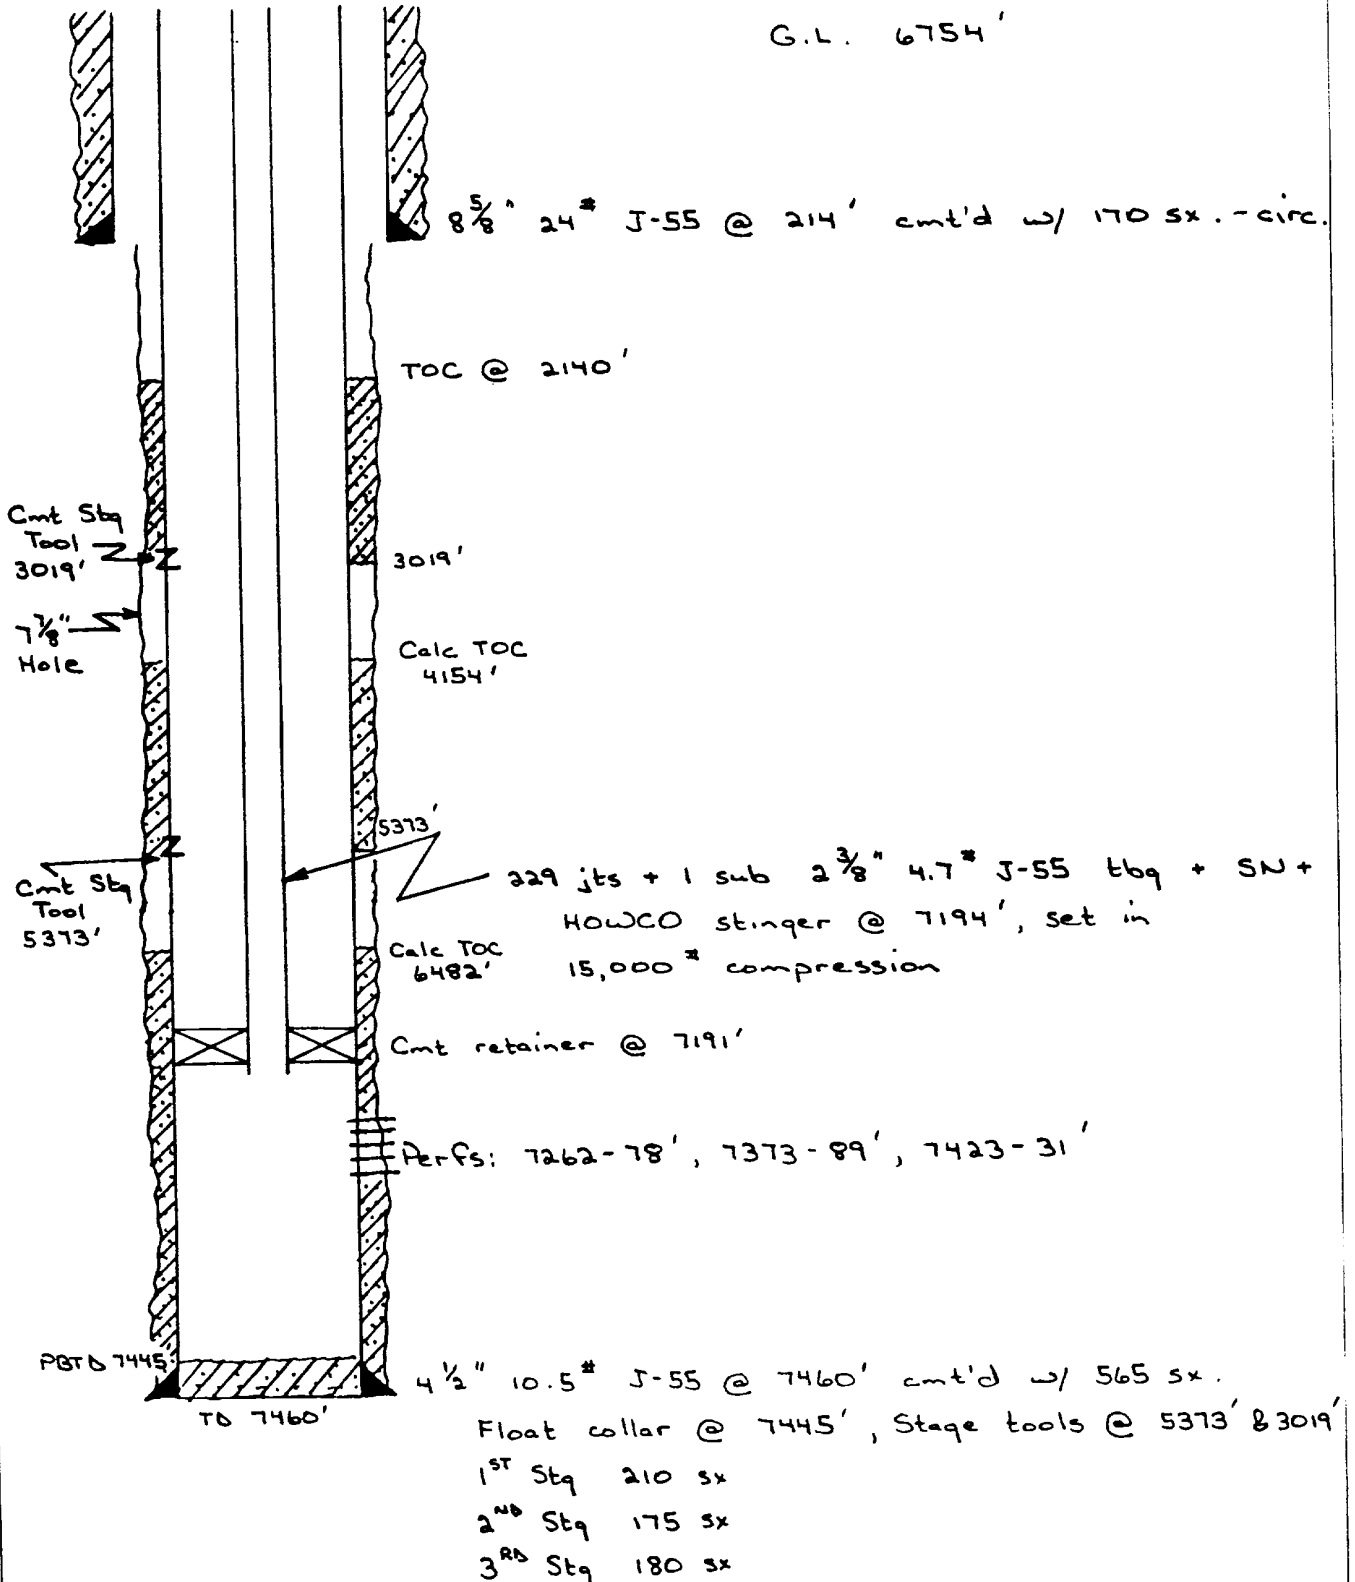 G.L. 6754'
8 5/8" 24# J-55 @ 214' cmt'd w/ 170 sx. - circ.
TOC @ 2140'
Cmt Stg
Tool
3019'
3019'
7 7/8"
Hole
Calc TOC
4154'
5373'
Cmt Stg
Tool
5373'
229 jts + 1 sub 2 3/8" 4.7# J-55 tbg + SN +
HOWCO stinger @ 7194', set in
15,000# compression
Calc TOC
6482'
Cmt retainer @ 7191'
Perfs: 7262-78', 7373-89', 7423-31'
PBTD 7445'
TD 7460'
4 1/2" 10.5# J-55 @ 7460' cmt'd w/ 565 sx.
Float collar @ 7445', Stage tools @ 5373' & 3019'
1ST Stg 210 sx
2ND Stg 175 sx
3RD Stg 180 sx